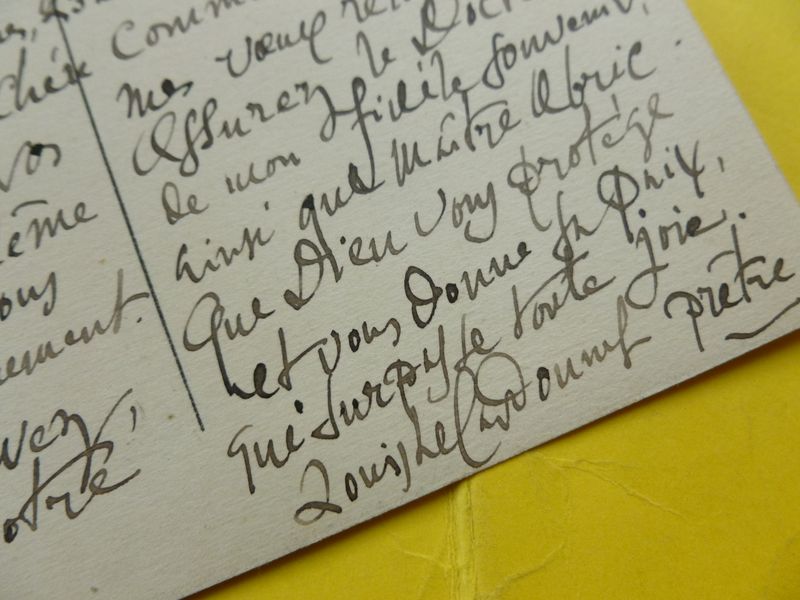 Chère
vos
même
ous
nement.
otre
comm
mes vœux
Assurez le Doct
de mon fidèle souvenir,
ainsi que Maître Abric.
Que Dieu vous protège
et vous donne sa paix,
qui surpasse toute joie.
prêtre